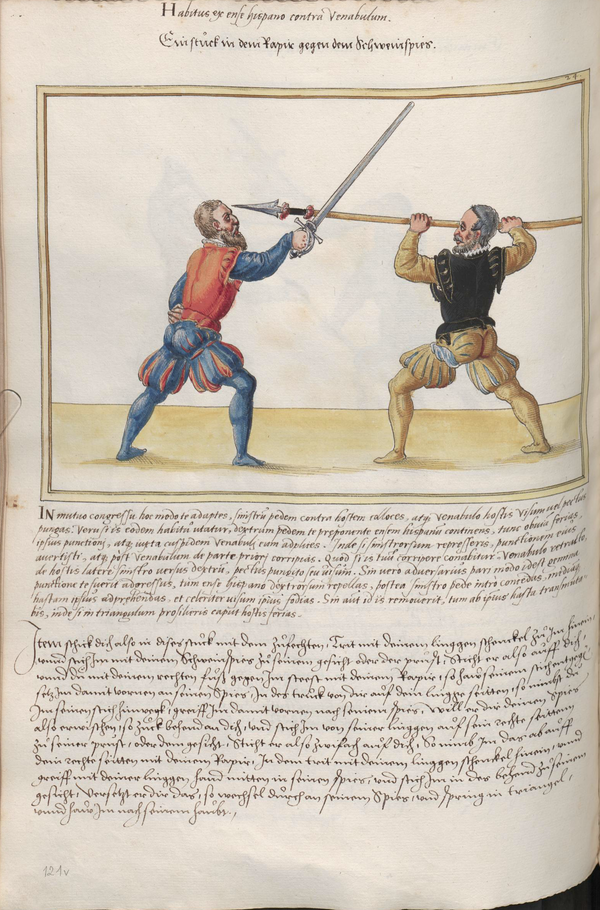 Habitus ex ense hispano contra Venabulum.
Ein stuck in dem Rapir gegen dem Schweinspies.
IN mutuo congressu hoc modo te adaptes, sinistrũ pedem contra hostem colloces, atqȝ venabulo hostis visum vel pectus
pungas. Verũ si is eodem habitu utatur, dextrum pedem tu preponente ensem hispanũ continens, tunc obvia ferias
ipsius punctioni, atqȝ iuxta cuspidem venabuli eum adplices. Inde si sinistrorsum represseris, punctionem eius
avertisti, atqȝ post venabulum de parte priori corripias. Quod si is tuũ arripere conabitur Venabulo revoluto
de hostis latere sinistro versus dextrũ, pectus pungito seu visum. Sin vero adversarius pari modo idest gemina
punctione te fuerit adgressus, tum ense hispano dextrorsum repellas, postea sinistro pede intro concedas, mediam
hastam ipsius adprehendas, et celeriter visum ipsius fodias. Sin aut id is removerit, tum ab ipsius hasta transmuta-
bis, inde si in triangulum prosilieris caput hostis ferias.
Item schick dich also in dises stuck mit dem Zufechten, Trit mit deinem linggen schenckel zu Im hinein
unnd stich Im mit deinem Schweinspies zu seinem gesicht oder der prust, Sticht er also auff dich,
unnd du mit deinem rechten fuss gegen Im steest mit deinem Rapir, so haw seinem stich entgegen
setz Im damit vornen an seinen Spies, In des truck von dir auf dein lingge seitten, so nimbst du
Im seinen stich hinweckh, greiff Im damit vornen nach seinem Spies. Will er dir deinen Spies
also erwischen, so zuck behend an dich, und stich Im von seiner linggen auf sein rechte seitten
zu seiner prust, oder dem gesicht. Sticht er also zwifach auff dich, So nimb Im das ab auff
dein rechte seitten mit deinem Rapir, In dem trit mit deinem linggen schenckel hinein, unnd
greiff mit deiner linggen hand mitten in seinen Spies, und stich Im in des behend zu seinem
gesicht, Versetzt er dir das, so wechsel durch an seinem Spies, und spring in triangel,
unnd haw Im nach seinem haubt.
121v